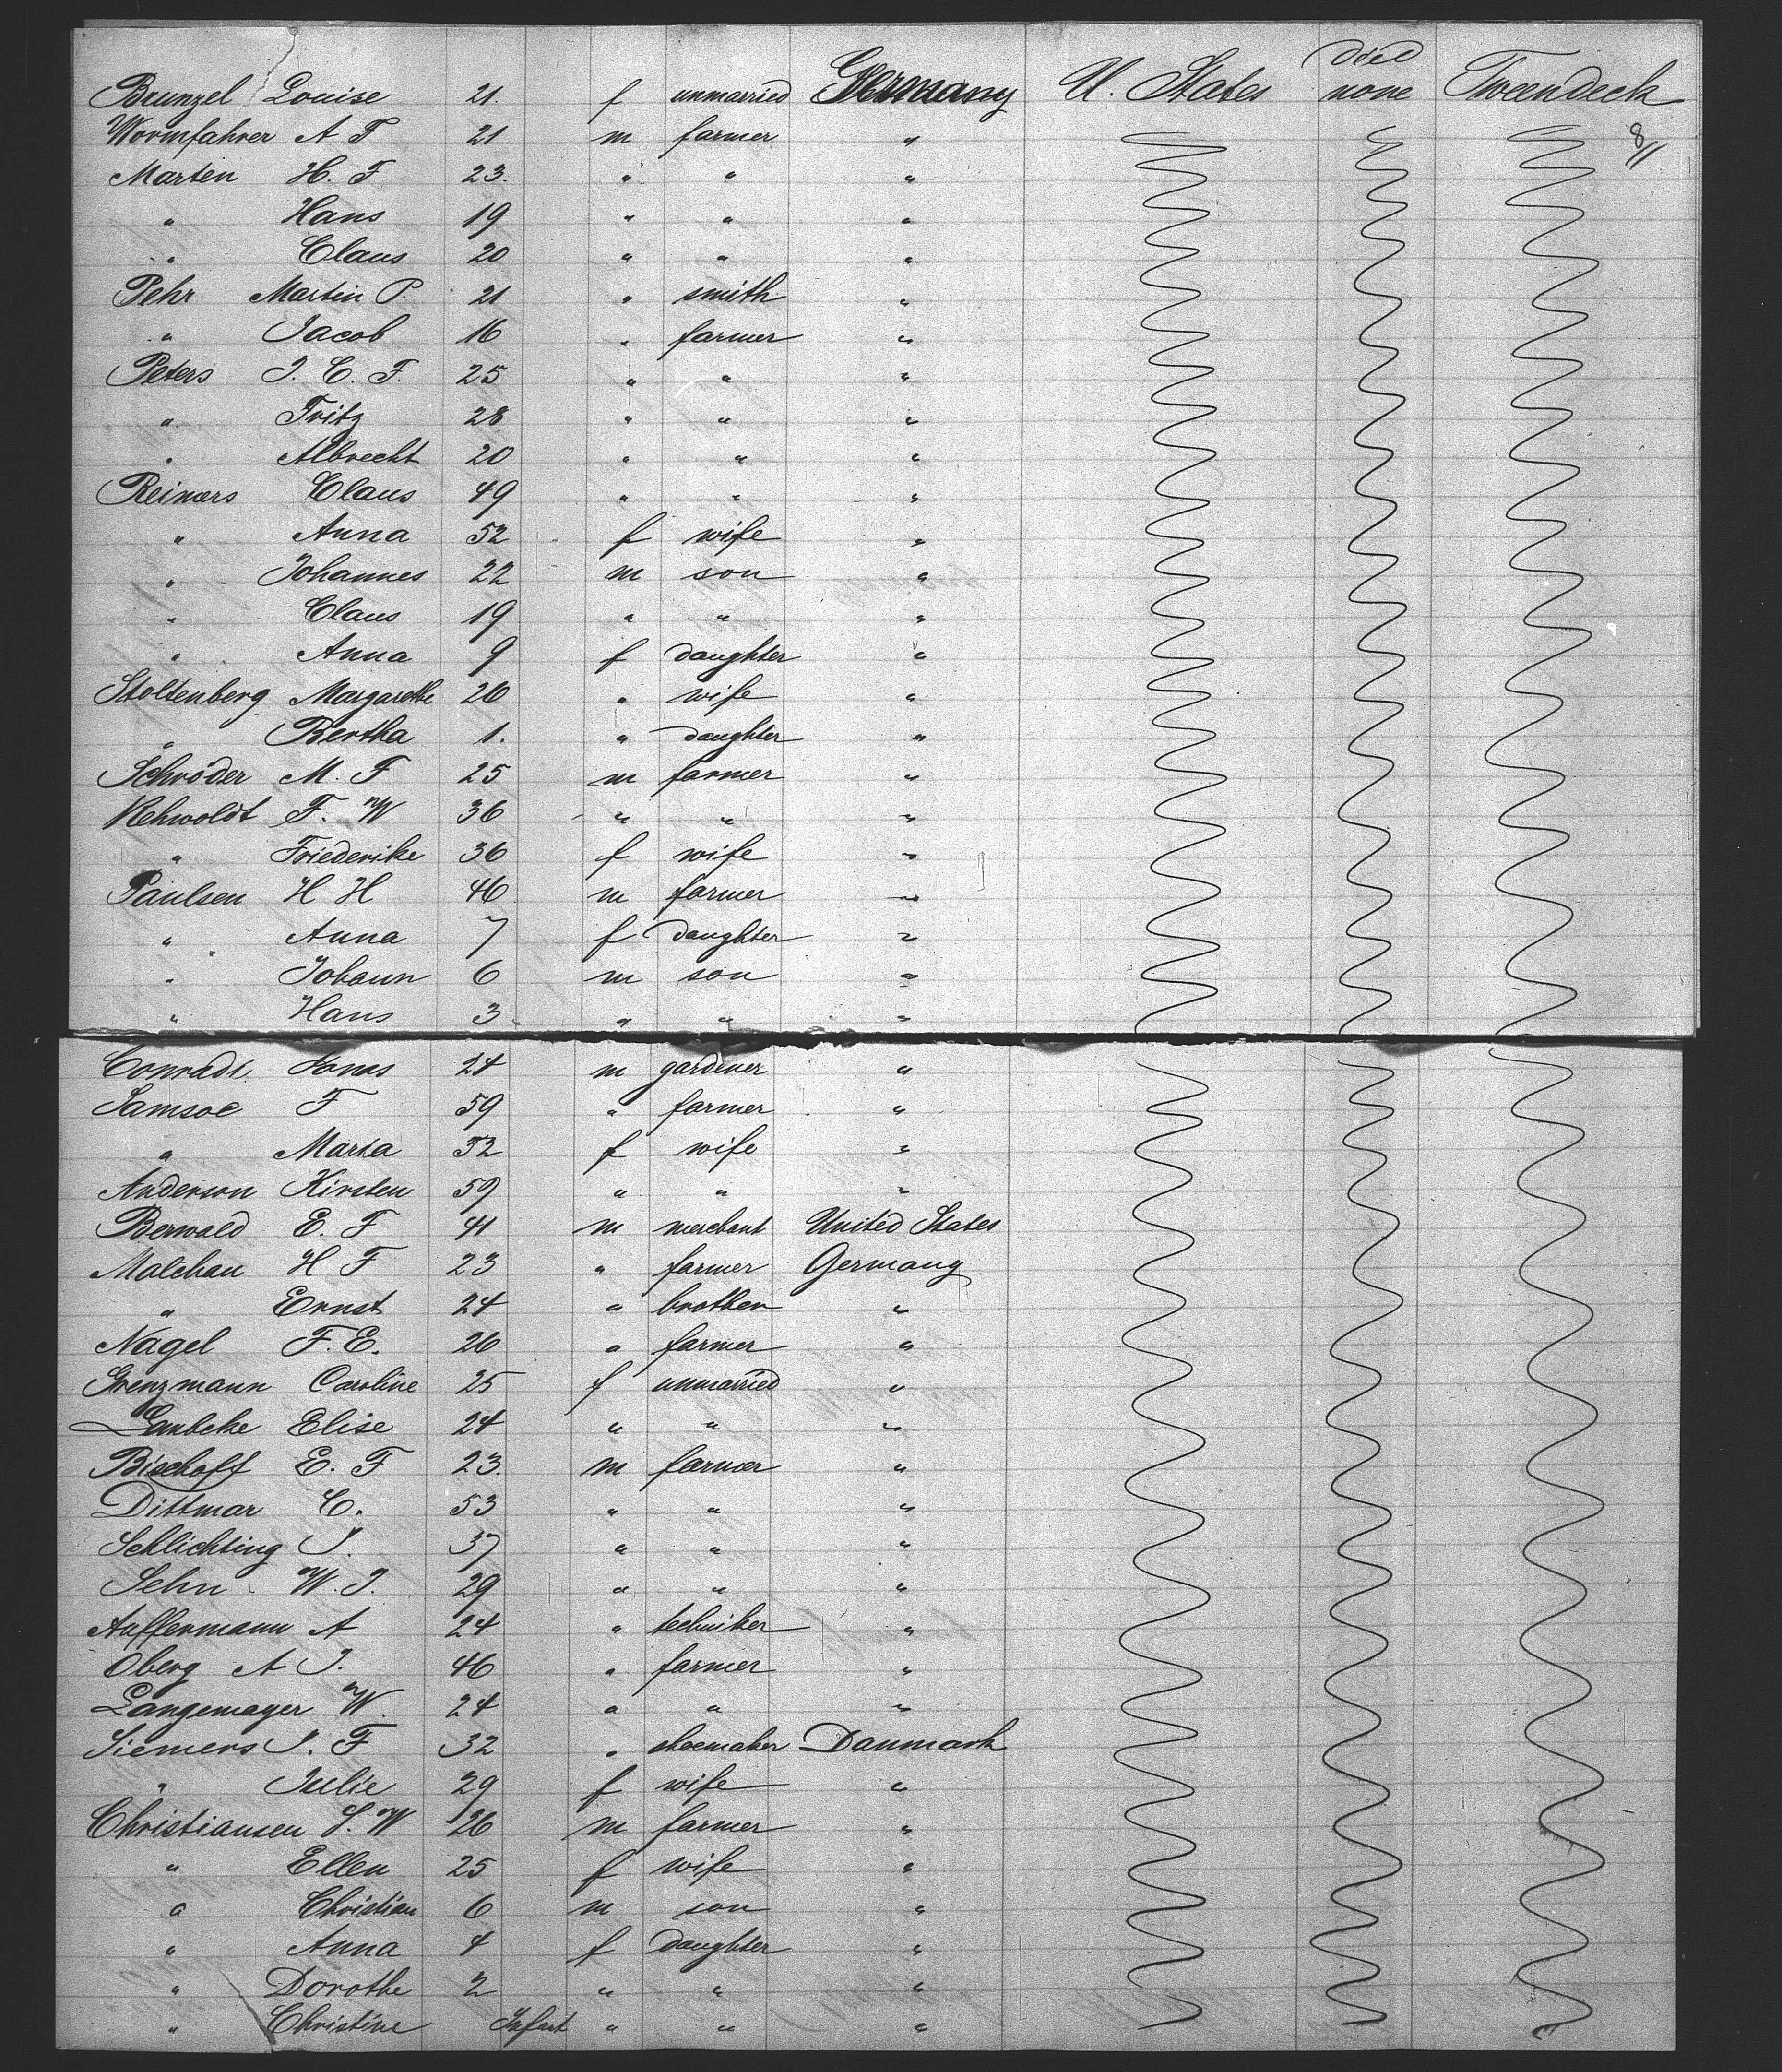 Brunzel Louise 21. f unmarried Germany U. States died none Tweendeck
Wormfahrer A F 21 m farmer " 8/11
Marten H. F 23. " " "
" Hans 19 " " "
" Claus 20 " " "
Pehr Martin P. 21 " smith "
" Jacob 16 " farmer "
Peters J. C. F. 25 " " "
" Fritz 28 " " "
" Albrecht 20 " " "
Reimers Claus 49 " " "
" Anna 52 f wife "
" Johannes 22 m son "
" Claus 19 " " "
" Anna 9 f daughter "
Stoltenberg Margarethe 26 " wife "
" Bertha 1. " daughter "
Schröder M. F 25 m farmer "
Kehwoldt F. W 36 " " "
" Friederike 36 f wife "
Paulsen H H 46 m farmer "
" Anna 7 f daughter "
" Johann 6 m son "
" Hans 3 " " "
Conradi 24 m gardener "
Samsoe F 59 " farmer "
" Maria 52 f wife "
Anderson Kirsten 59 " " "
Berwald E. F 41 m merchant United States
Malchau H F 23 " farmer Germany
" Ernst 24 " brother "
Nagel F. E. 26 " farmer "
Grenzmann Caroline 25 f unmarried "
Lanbcke Elise 24 " " "
Bischoff E. F 23. m farmer "
Dittmar C. 53 " " "
Schlichting J. 37 " " "
Sehn W. J. 29 " " "
Auffermann A 24 " techniker "
Oberg A J. 46 " farmer "
Langemayer W. 24 " " "
Siemers J. F 32 " shoemaker Danmark
" Julie 29 f wife "
Christiansen S. W 26 m farmer "
" Ellen 25 f wife "
" Christian 6 m son "
" Anna 4 f daughter "
" Dorothe 2 " " "
" Christine Infant " " "